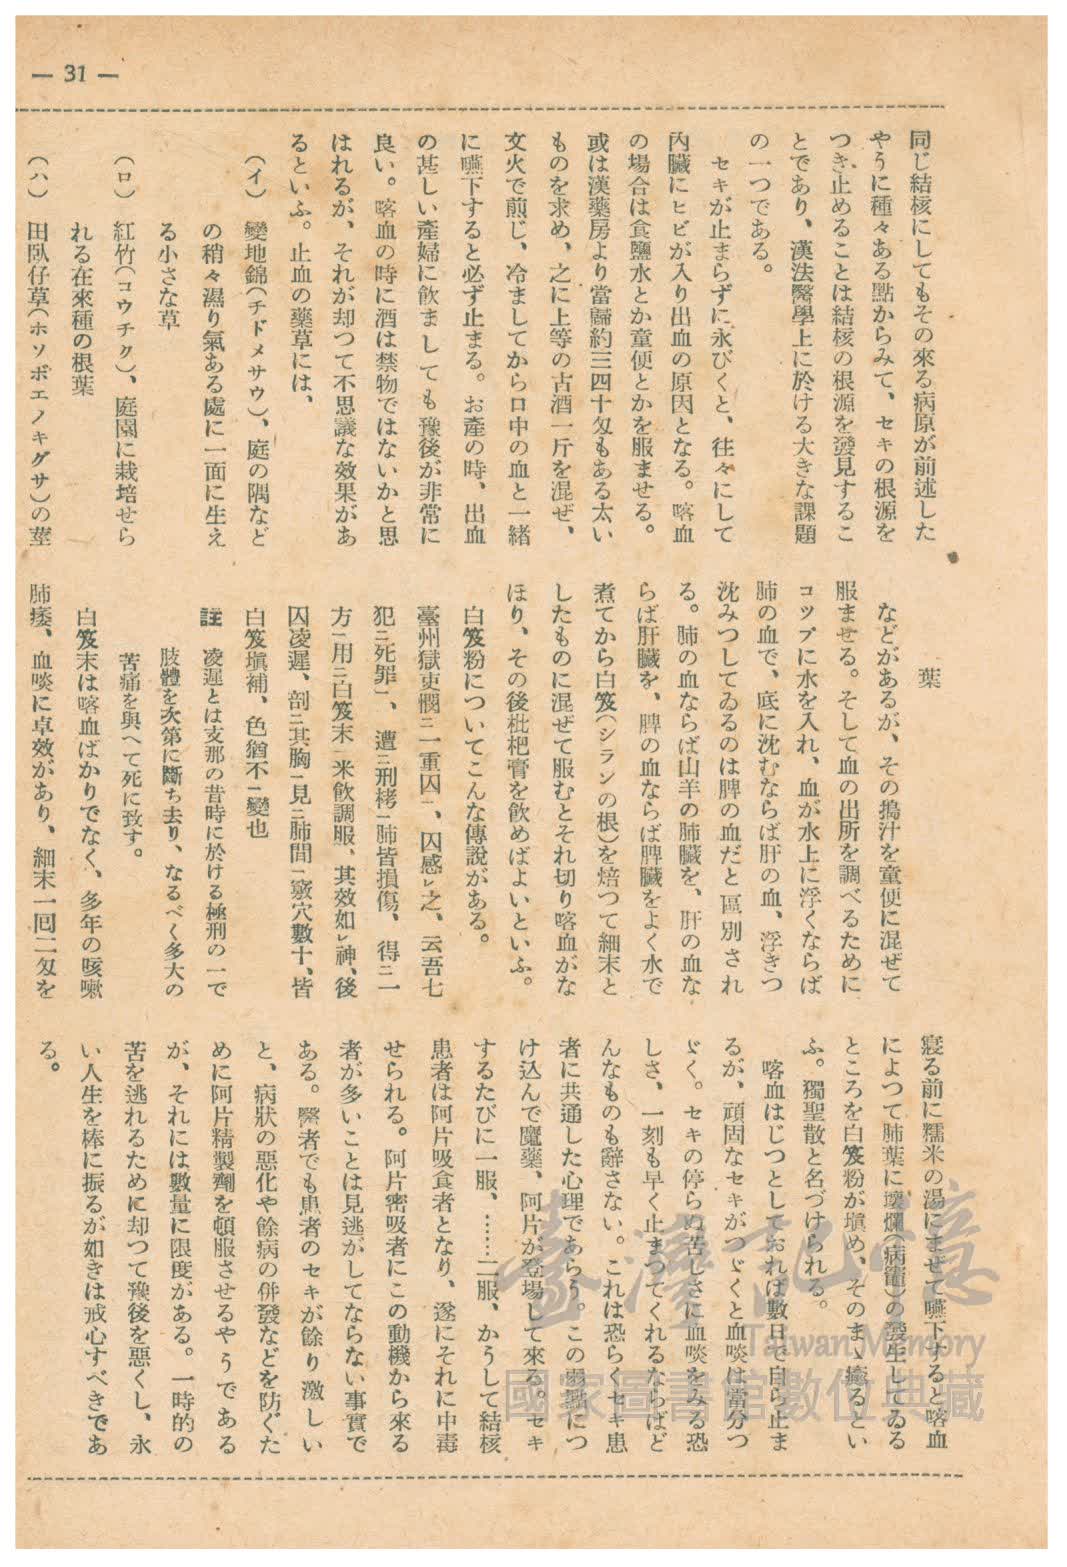 — 31 —
同じ結核にしてもその來る病原が前述した
やうに種々ある點からみて、セキの根源を
つき止めることは結核の根源を發見するこ
とであり、漢法醫學上に於ける大きな課題
の一つである。
セキが止まらずに永びくと、往々にして
內臟にヒビが入り出血の原因となる。喀血
の場合は食鹽水とか童便とかを服ませる。
或は漢藥房より當歸約三四十匁もある太い
ものを求め、之に上等の古酒一斤を混ぜ、
文火で煎じ、冷ましてから口中の血と一緒
に嚥下すると必ず止まる。お產の時、出血
の甚しい產婦に飮ましても豫後が非常に
良い。喀血の時に酒は禁物ではないかと思
はれるが、それが却つて不思議な效果があ
るといふ。止血の藥草には、
(イ) 變地錦(チドメサウ)、庭の隅など
の稍々濕り氣ある處に一面に生え
る小さな草
(ロ) 紅竹(コウチク)、庭園に栽培せら
れる在來種の根葉
(ハ) 田臥仔草(ホソボエノキグサ)の莖
葉
などがあるが、その搗汁を童便に混ぜて
服ませる。そして血の出所を調べるために
コップに水を入れ、血が水上に浮くならば
肺の血で、底に沈むならば肝の血、浮きつ
沈みつしてゐるのは脾の血だと區別され
る。肺の血ならば山羊の肺臟を、肝の血な
らば肝臟を、脾の血ならば脾臟をよく水で
煮てから白笈(シランの根)を焙つて細末と
したものに混ぜて服むとそれ切り喀血がな
ほり、その後枇杷膏を飮めばよいといふ。
白笈粉についてこんな傳說がある。
臺州獄吏憫ニ一重囚一、囚感レ之、云吾七
犯ニ死罪一、遭ニ刑拷一肺皆損傷、得ニ一
方一用ニ白笈末一米飮調服、其效如レ神、後
囚凌遲、剖ニ其胸一見ニ肺間一竅穴數十、皆
白笈塡補、色猶不レ變也
註 凌遲とは支那の昔時に於ける極刑の一で
肢體を次第に斷ち去り、なるべく多大の
苦痛を與へて死に致す。
白笈末は喀血ばかりでなく、多年の咳嗽
肺痿、血啖に卓效があり、細末一回二匁を
寢る前に糯米の湯にまぜて嚥下すると喀血
によつて肺葉に壞爛(病竈)の發生してゐる
ところを白笈粉が塡め、そのまゝ癒るとい
ふ。獨聖散と名づけられる。
喀血はじつとしておれば數日で自ら止ま
るが、頑固なセキがつゞくと血啖は當分つ
ゞく。セキの停らぬ苦しさに血啖をみる恐
しさ、一刻も早く止まつてくれるならばど
んなものも辭さない。これは恐らくセキ患
者に共通した心理であらう。この弱點につ
け込んで魔藥、阿片が登場して來る。セキ
するたびに一服、……二服、かうして結核
患者は阿片吸食者となり、遂にそれに中毒
せられる。阿片密吸者にこの動機から來る
者が多いことは見逃がしてならない事實で
ある。醫者でも患者のセキが餘り激しい
と、病狀の惡化や餘病の併發などを防ぐた
めに阿片精製劑を頓服させるやうである
が、それには數量に限度がある。一時的の
苦を逃れるために却つて豫後を惡くし、永
い人生を棒に振るが如きは戒心すべきであ
る。
臺灣記憶
Taiwan Memory
國家圖書館數位典藏